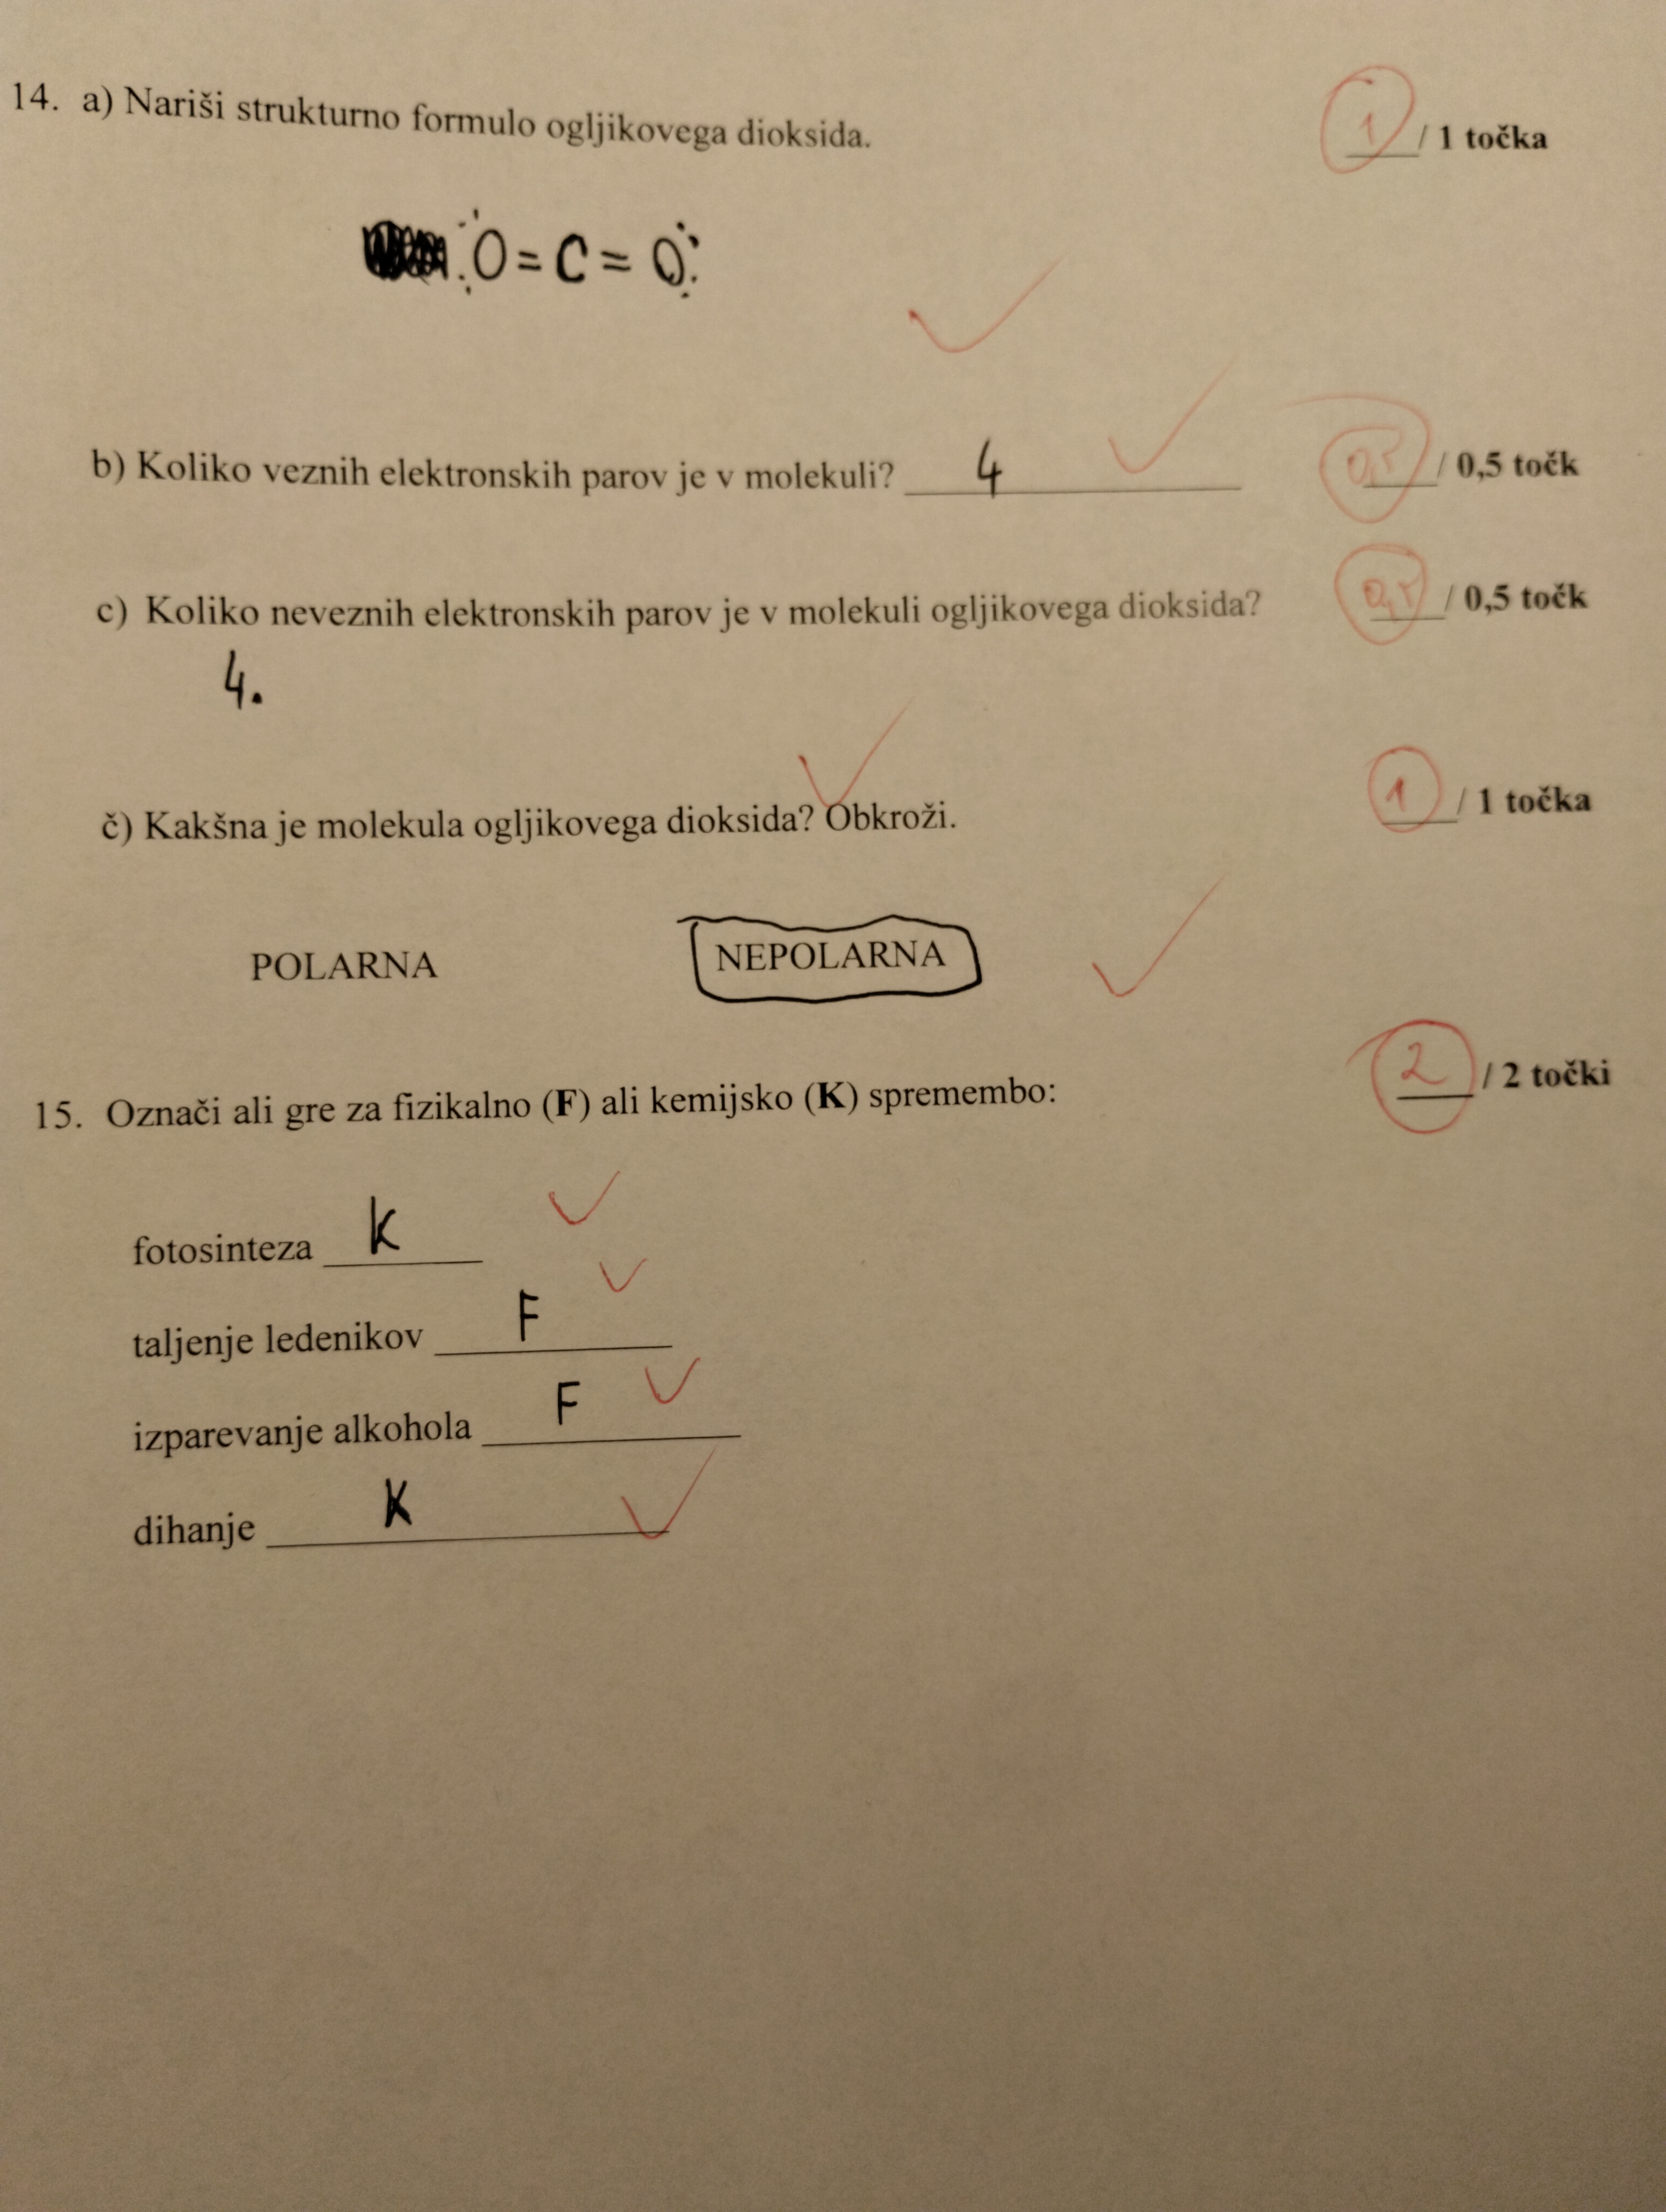 14. a) Nariši strukturno formulo ogljikovega dioksida. 1 / 1 točka
O = C = O
b) Koliko veznih elektronskih parov je v molekuli? 4 0,5 / 0,5 točk
c) Koliko neveznih elektronskih parov je v molekuli ogljikovega dioksida? 0,5 / 0,5 točk
4.
č) Kakšna je molekula ogljikovega dioksida? Obkroži. 1 / 1 točka
POLARNA NEPOLARNA
15. Označi ali gre za fizikalno (F) ali kemijsko (K) spremembo: 2 / 2 točki
fotosinteza K
taljenje ledenikov F
izparevanje alkohola F
dihanje K